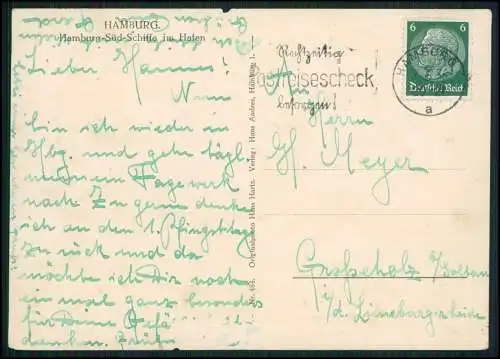 HAMBURG.
Hamburg-Süd-Schiffe im Hafen
Lieber Hannes!
Nun
bin ich wieder in
Hbg. und gehe tägl.
meinem Tagewerk
nach. Zu gern denke
ich an den 1. Pfingsttag
zurück und da
möchte ich Dir noch
einmal ganz besonders
für Deine
danken. Grüße
Nr. 686. Originalphoto Hans Hartz. Verlag: Hans Andres, Hamburg 1.
Rechtzeitig
Reisescheck
besorgen!
HAMBURG
a
6 6
Deutsches Reich
An
Herrn
H. Meyer
Großeholz
i/d. Lüneburgerheide